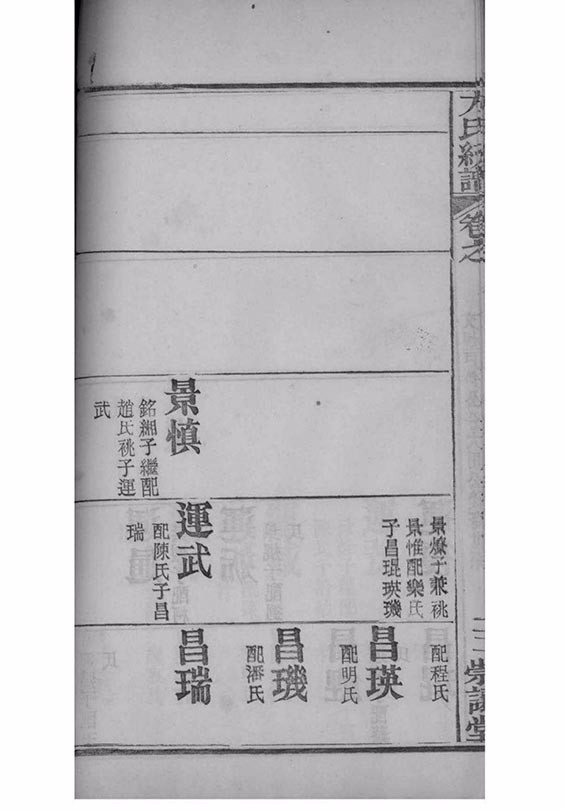 氏續譜
卷之
三 崇讓堂
景慎
銘緗子繼配
趙氏祧子運
武
景燎子兼祧
景惟配欒氏
子昌琨瑛璣
運武
配陳氏子昌
瑞
配程氏
昌瑛
配明氏
昌璣
配潘氏
昌瑞